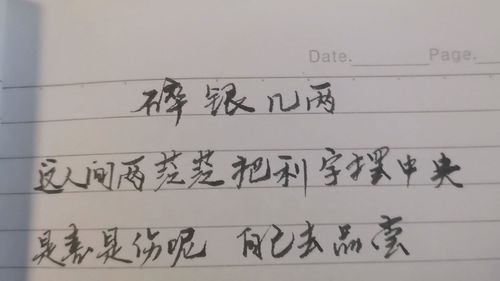 Date. Page.
碎银几两
这人间两茫茫把利字摆中央
是喜是伤呢 自己去品尝